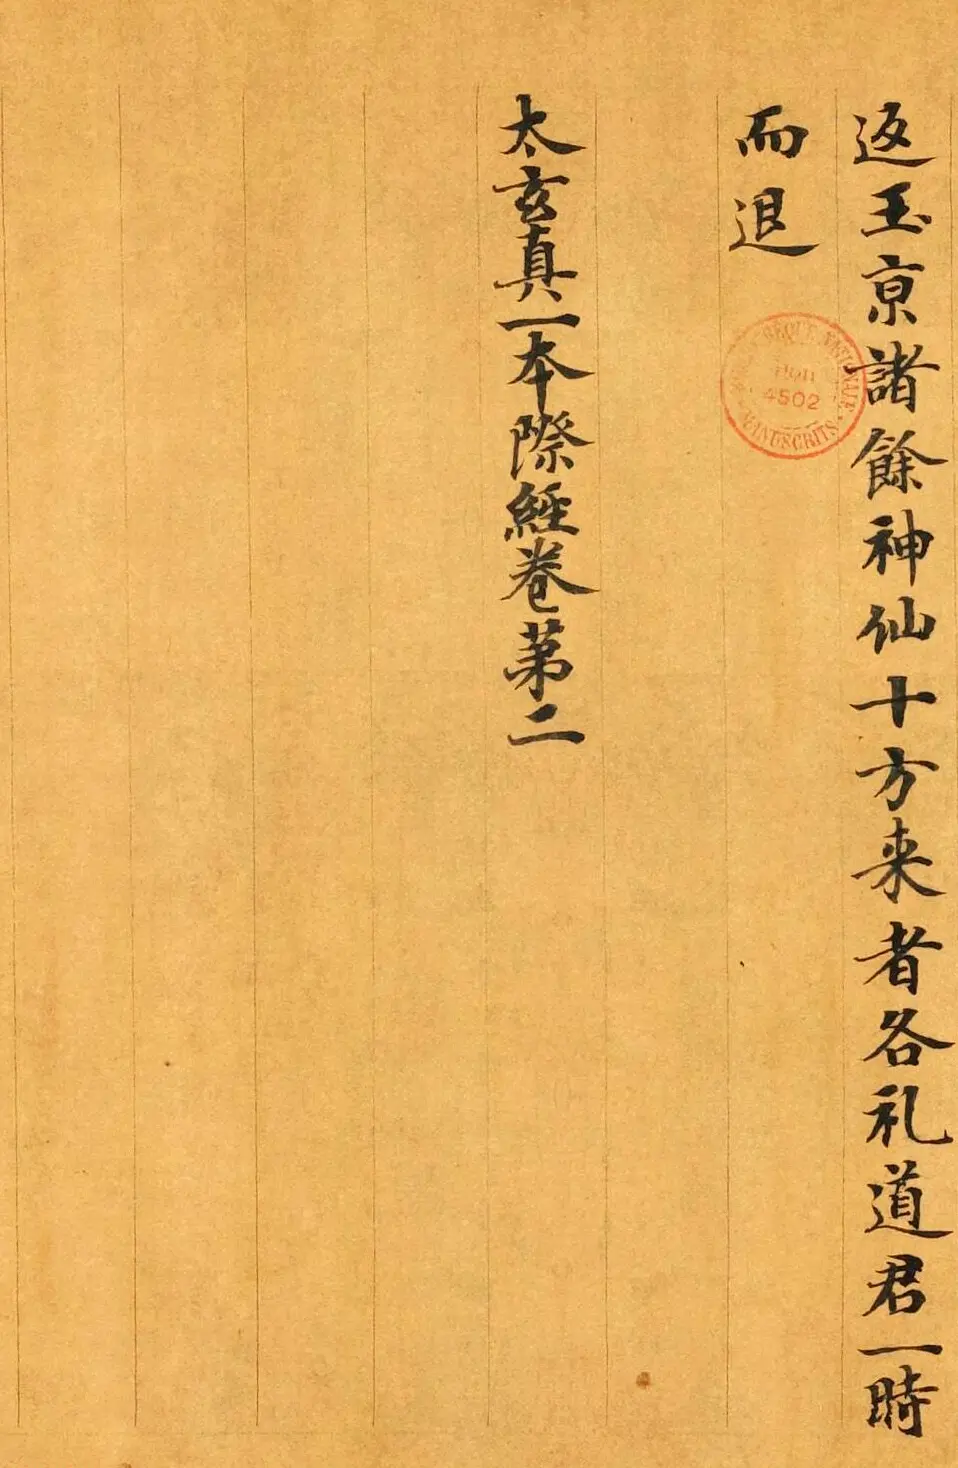 返玉京諸餘神仙十方来者各礼道君一時
而退
太玄真一本際經卷第二
NATIONALE
4502
MANUSCRITS